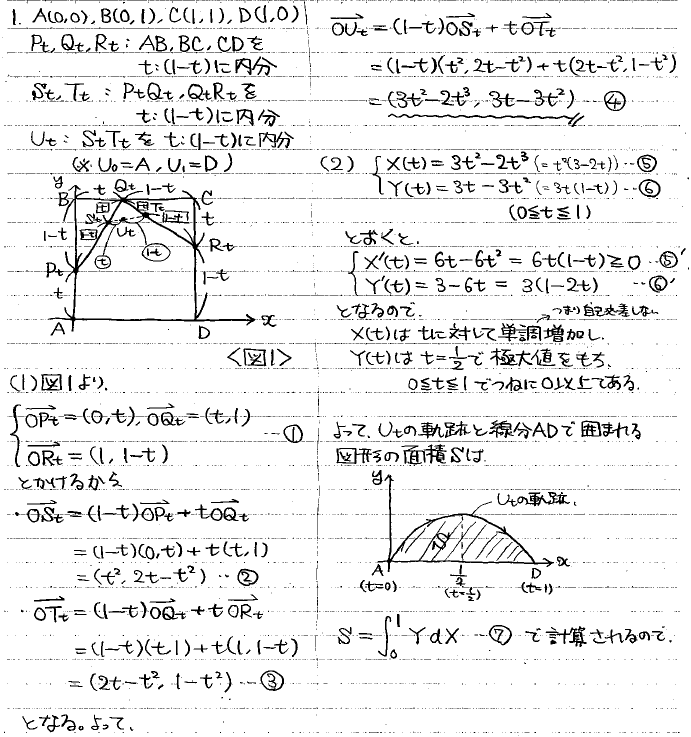 1. A(0,0), B(0,1), C(1,1), D(1,0)
Pt, Qt, Rt : AB, BC, CDを
t:(1-t)に内分
St, Tt : PtQt, QtRtを
t:(1-t)に内分
Ut : StTtを t:(1-t)に内分
(※ U₀=A, U₁=D)
y
B
t
Qt
1-t
C
t
1-t
St
Tt
t
1-t
t
1-t
Ut
t
1-t
Rt
Pt
1-t
t
A
D
x
<図1>
(1) 図1より、
OPt→ = (0,t), OQt→ = (t,1)
ORt→ = (1, 1-t) …①
とかけるから
・OSt→ = (1-t)OPt→ + tOQt→
= (1-t)(0,t) + t(t,1)
= (t², 2t-t²) …②
・OTt→ = (1-t)OQt→ + tORt→
= (1-t)(t,1) + t(1,1-t)
= (2t-t², 1-t²) …③
となる。よって、
OUt→ = (1-t)OSt→ + tOTt→
= (1-t)(t², 2t-t²) + t(2t-t², 1-t²)
= (3t²-2t³, 3t-3t²) ④
(2) { X(t) = 3t²-2t³ (=t²(3-2t)) …⑤
Y(t) = 3t-3t² (=3t(1-t)) …⑥
(0≦t≦1)
とおくと、
{ X'(t) = 6t-6t² = 6t(1-t) ≧ 0 …⑤'
Y'(t) = 3-6t = 3(1-2t) …⑥'
となるので、
つまり自己交差しない
X(t)はtに対して単調増加し、
Y(t)は t=1/2で極大値をもち、
0≦t≦1でつねに0以上である。
よって、Utの軌跡と線分ADで囲まれる
図形の面積Sは
y
Utの軌跡
A
(t=0)
1/2
(t=1/2)
D
(t=1)
x
S = ∫₀¹ Y dX …⑦ で計算されるので、